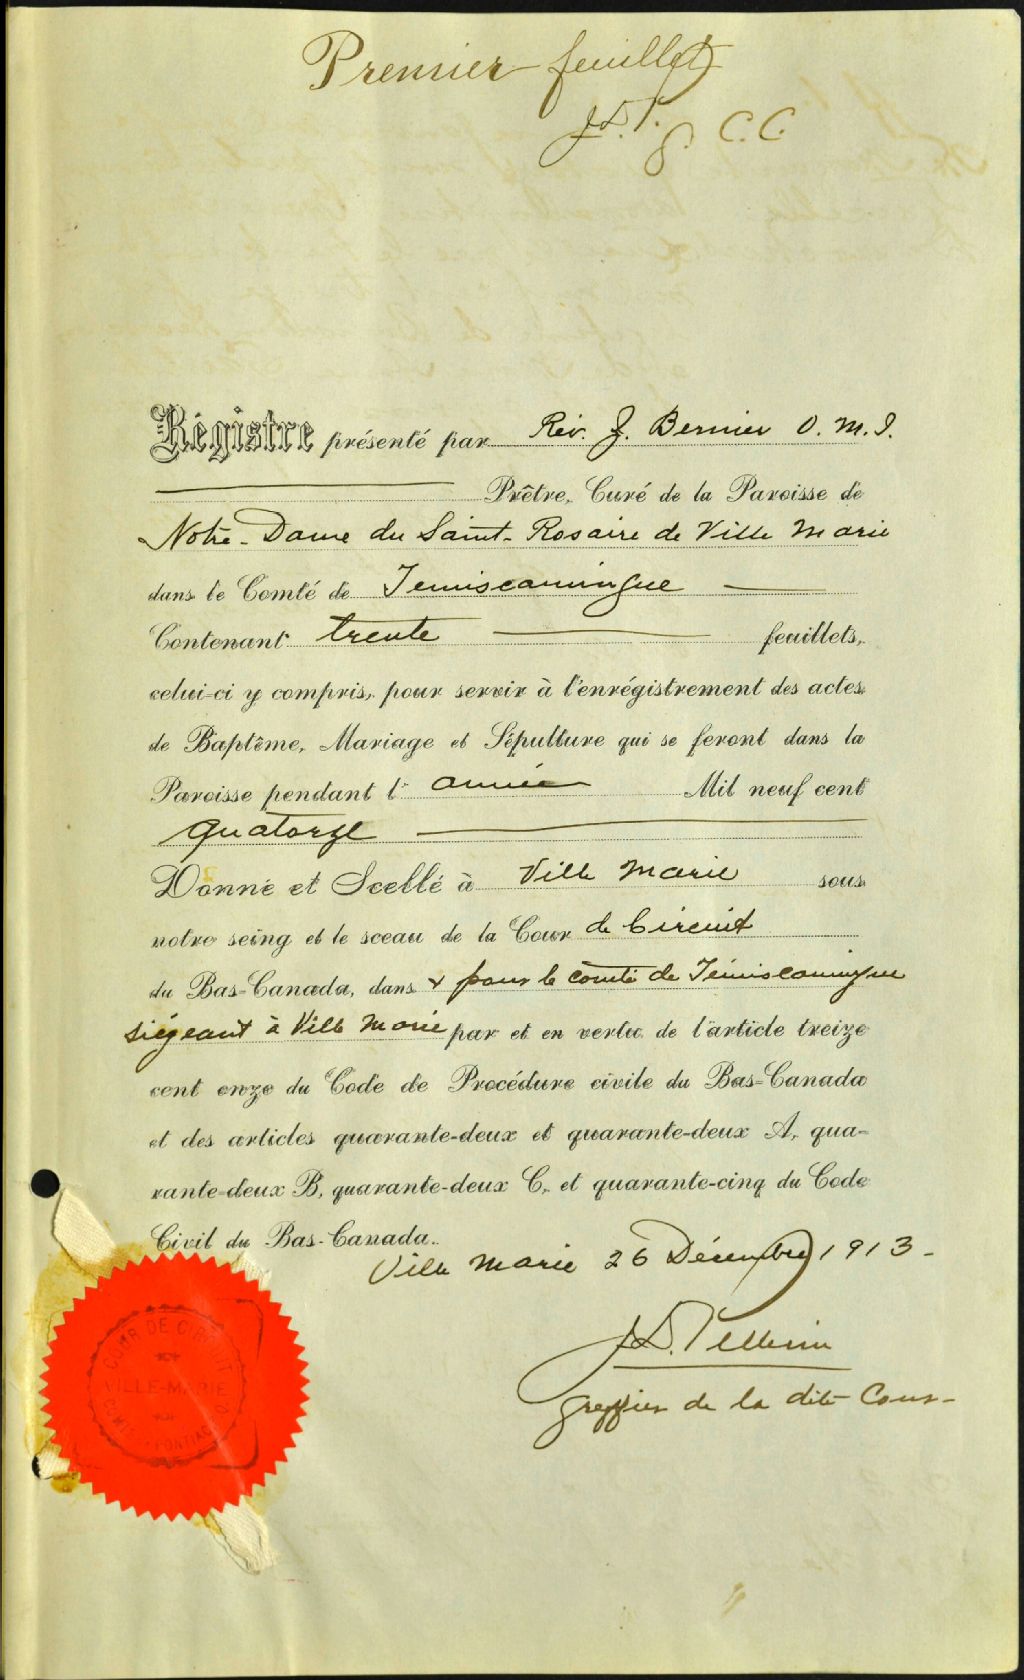 Premier feuillet
J.D.P.
g. C.C.
Régistre présenté par Rév. J. Bernier O.M.I.
Prêtre, Curé de la Paroisse de
Notre-Dame du Saint-Rosaire de Ville Marie
dans le Comté de Temiscamingue
Contenant trente feuillets,
celui-ci y compris, pour servir à l'enrégistrement des actes
de Baptême, Mariage et Sépulture qui se feront dans la
Paroisse pendant l' année Mil neuf cent
quatorze
Donné et Scellé à Ville Marie sous
notre seing et le sceau de la Cour de Circuit
du Bas-Canada, dans & pour le comté de Témiscamingue
siégeant à Ville Marie par et en vertu de l'article treize
cent onze du Code de Procédure civile du Bas-Canada
et des articles quarante-deux et quarante-deux A, qua-
rante-deux B, quarante-deux C, et quarante-cinq du Code
Civil du Bas-Canada.
Ville Marie 26 Décembre 1913-
J.D. Pellerin
greffier de la dite Cour-
COUR DE CIRCUIT
VILLE-MARIE
PONTIAC